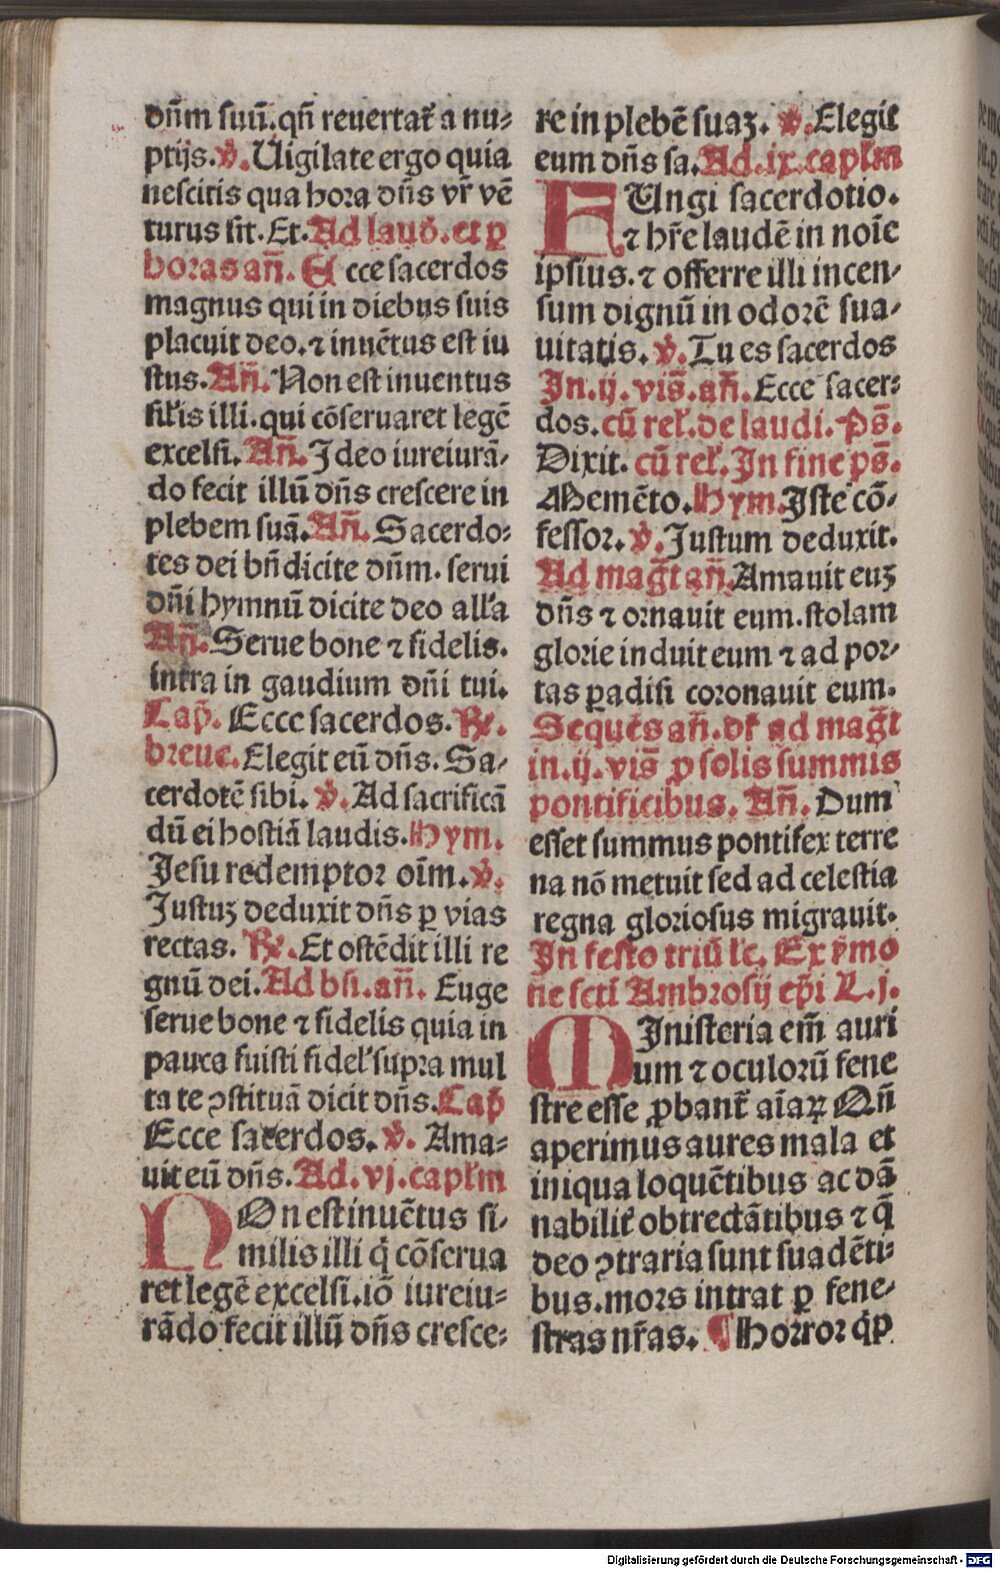 dn̄m suū.qn̄ reuertat᷑ a nu⸗
ptijs.℣.Uigilate ergo quia
nescitis qua hora dn̄s vr̄ vē
turus sit.Et.Ad laud̄.et ꝑ
horas an̄. Ecce sacerdos
magnus qui in diebus suis
placuit deo.⁊ inuētus est iu
stus.An̄.Non est inuentus
sil̄is illi.qui cōseruaret legē
excelsi.An̄.Ideo iureiurā⸗
do fecit illū dn̄s crescere in
plebem suā.An̄.Sacerdo⸗
tes dei bn̄dicite dn̄m.serui
dn̄i hymnū dicite deo all̄a
An̄.Serue bone ⁊ fidelis.
intra in gaudium dn̄i tui.
Cap̄. Ecce sacerdos.℞.
breue.Elegit eū dn̄s. Sa⸗
cerdotē sibi.℣.Ad sacrificā
dū ei hostiā laudis.Hym.
Jesu redemptor oīm.℣.
Justuʒ deduxit dn̄s ꝑ vias
rectas. ℞.Et ostēdit illi re
gnū dei.Ad bn̄.an̄. Euge
serue bone ⁊ fidelis quia in
pauca fuisti fidel̄ supra mul
ta te ꝯstituā dicit dn̄s.Cap̄
Ecce sacerdos.℣. Ama⸗
uit eū dn̄s.Ad.vj.capl̄m
NOn est inuētus si⸗
milis illi q̇ cōserua
ret legē excelsi.iō iureiu⸗
rādo fecit illū dn̄s cresce⸗
re in plebē suaʒ.℣.Elegit
eum dn̄s sa.Ad.ix.capl̄m
FUngi sacerdotio.
⁊ hr̄e laudē in noīe
ipsius.⁊ offerre illi incen⸗
sum dignū in odorē sua⸗
uitatis.℣.Tu es sacerdos
In.ij.vis̄.an̄.Ecce sacer⸗
dos.cū rel̄.de laudi.Ps̄.
Dixit.cū rel̄.In fine ps̄.
Memēto.Hym.Iste cō⸗
fessor.℣.Justum deduxit.
Ad mag̅t an̄.Amauit euʒ
dn̄s ⁊ ornauit eum.stolam
glorie induit eum ⁊ ad por⸗
tas ꝑadisi coronauit eum.
Sequēs an̄.dr̄ ad mag̅t
in.ij.vis̄ ꝓ solis summis
pontificibus. An̄. Dum
esset summus pontifex terre
na nō metuit sed ad celestia
regna gloriosus migrauit.
In festo triū lc̄. Ex p̄mo
ne scti Ambrosij ep̄i L.j.
MInisteria em̄ auri
um ⁊ oculorū fene
stre esse ꝓbant᷑ aīaꝝ Qn̄
aperimus aures mala et
iniqua loquētibus ac dā
nabilit᷑ obtrectātibus ⁊ q̄
deo ꝯtraria sunt suadēti⸗
bus.mors intrat ꝑ fene⸗
stras nr̄as. ¶Horror q̇ꝑ
Digitalisierung gefördert durch die Deutsche Forschungsgemeinschaft - DFG